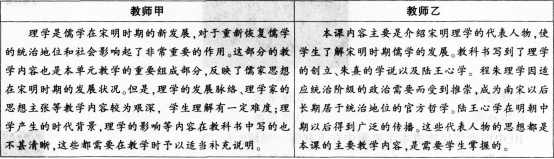 教师甲
理学是儒学在宋明时期的新发展,对于重新恢复儒学
的统治地位和社会影响起了非常重要的作用。这部分的教
学内容也是本单元教学的重要组成部分,反映了儒家思想
在宋明时期的发展状况。但是,理学的发展脉络、理学家的
思想主张等教学内容较为艰深,学生理解有一定难度;理
学产生的时代背景,理学的影响等内容在教科书中写的也
不甚清晰,这些都需要在教学时予以适当补充说明。
教师乙
本课内容主要是介绍宋明理学的代表人物,使
学生了解宋明时期儒学的发展。教科书写到了理学
的创立、朱熹的学说以及陆王心学。程朱理学因适
应统治阶级的政治需要而受到推崇,成为南宋以后
长期居于统治地位的官方哲学。陆王心学在明朝中
期以后得到广泛的传播。这些代表人物的思想都是
本课的主要教学内容,是需要学生掌握的。